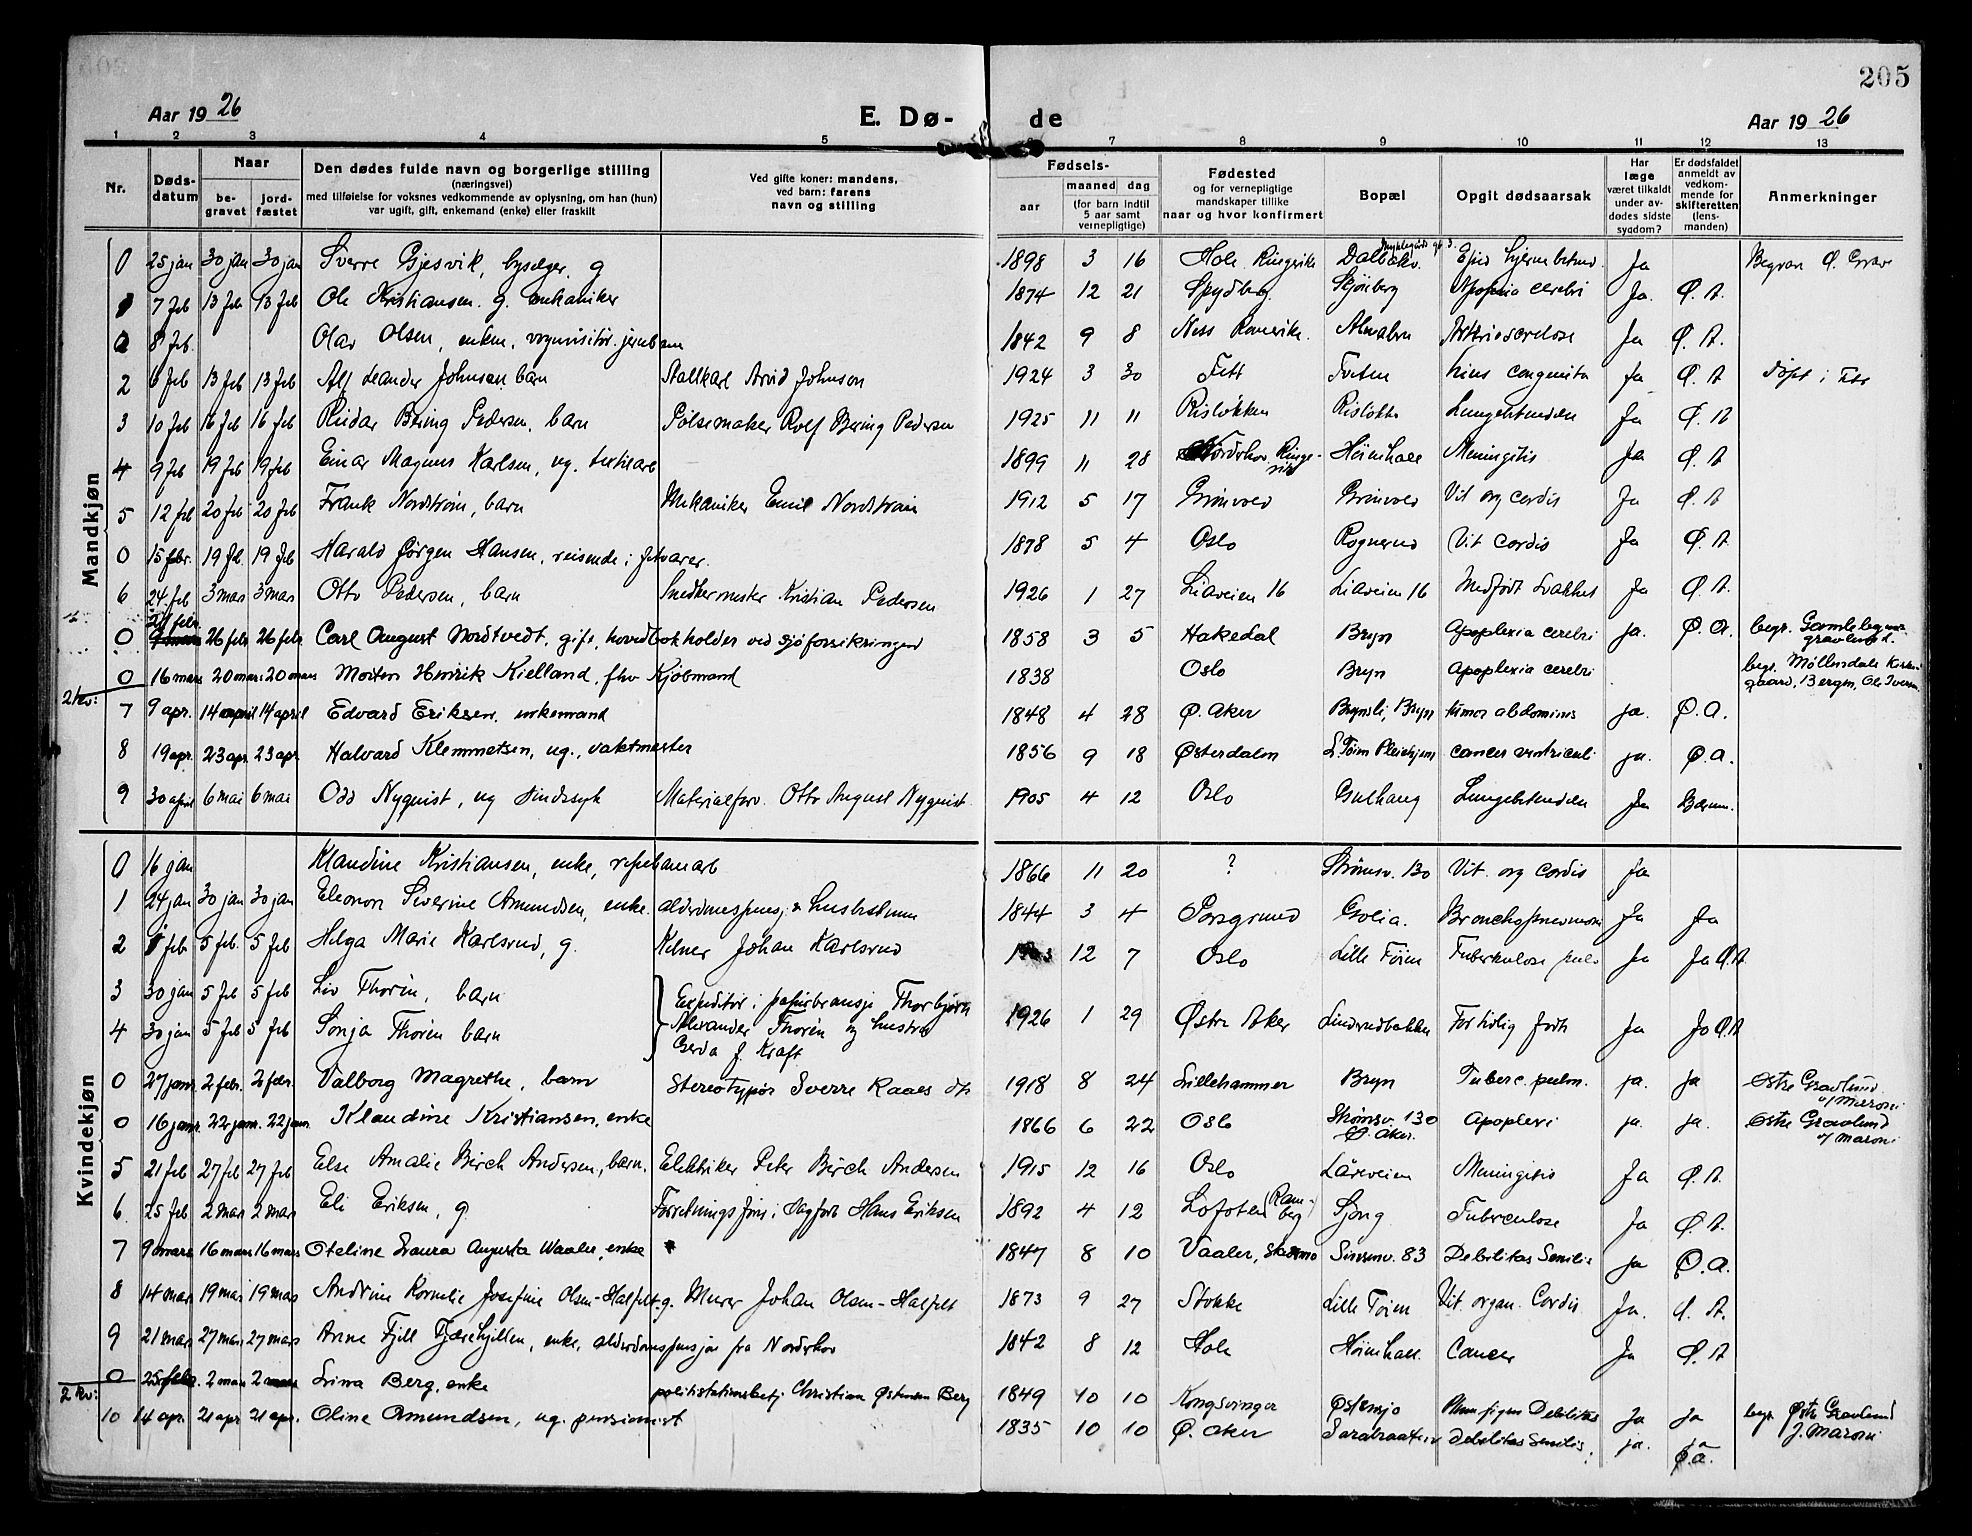 205
Aar 19 26 E. Dø- de Aar 19 26
1 2 3 4 5 7 8 9 10 11 12 13
Nr. Døds-datum Naar be-gravet jord-fæstet Den dødes fulde navn og borgerlige stilling (næringsvei) med tilføielse for voksnes vedkommende av oplysning, om han (hun) var ugift, gift, enkemand (enke) eller fraskilt Ved gifte koner: mandens, ved barn: farens navn og stilling Fødsels- aar maaned dag (for barn indtil 5 aar samt vernepligtige) Fødested og for vernepligtige mandskaper tillike naar og hvor konfirmert Bopæl Opgit dødsaarsak Har læge været tilkaldt under av-dødes sidste sygdom? Er dødsfaldet anmeldt av vedkom-mende for skifteretten (lens-manden) Anmerkninger
Mandkjøn
0 25 jan 30 jan 30 jan Sverre Gjesvik, g 1898 3 16 Hole Ringerike Dalbakv. Ja
7 feb 13 feb 13 feb Ole Kristiansen. g. mekaniker 1874 12 21 Spydberg Apoplexia cerebri Ja. Ø. A.
8 feb. Olav Olsen, enkem. 1842 9 8 Ness Romerike Alnabru Ja Ø. A.
2 6 feb 13 feb 13 feb Alf Leander Johnsen barn Stallkarl Arvid Johnson 1924 3 30 Fett Tveten congenita Ja Ø. A døpt i Fet
3 10 feb 16 feb 16 feb Reidar Bering Pedersen, barn Pølsemaker Rolf Bering Pedersen 1925 11 11 Risløkken Risløkken Lungebetendelse Ja Ø. A
4 9 feb 19 feb 19 feb Einar Magnus Karlsen, ug. 1899 11 28 Norderhov Ringerike Høienhall Meningitis Ja Ø. A
5 12 feb 20 feb 20 feb Frank Nordstrøm, barn Mekaniker Emil Nordstrøm 1912 5 17 Grønvold Grønvold Vit org cordis Ja Ø. A
0 15 febr. 19 feb. 19 feb Harald Jørgen Hansen, reisende i fetvarer. 1878 5 4 Oslo Rognerud Vit cordis Ja Ø. A.
6 24 feb 3 mars 3 mars Otto Pedersen, barn Snedkermester Kristian Pedersen 1926 1 27 Liaveien 16 Liaveien 16 Medfødt svakhet Ja Ø. A.
0 26 febr 26 febr Carl August Nordtvedt, gift, hovedbokholder ved sjøforsikringen 1858 3 5 Hakedal Bryn Apoplexia cerebri ja. Ø. A. begr. Gamlebyens gravlund.
0 16 mars 20 mars 20 mars Morten Henrik Kielland, fhv Kjøbmand 1838 Oslo Bryn Apoplexia cerebri begr. Møllendals Kirkegaard, Bergen,
2 kv: 7 9 apr. 14 april 14 april Edvard Eriksen, enkemand 1848 4 28 Ø. Aker Brynsli, Bryn tumor abdominis ja. Ø. A.
8 19 apr. 23 apr. 23 apr. Halvard Klemmetsen, ug., vaktmester 1856 9 18 Østerdalen L. Tøien Pleiehjem cancer ventriculi ja. Ø. A.
9 30 april 6 mai 6 mai Odd Nyquist, ug sindssyk Materialforv. Otto August Nyquist 1905 4 12 Oslo Gulhaug Lungebetendelse Ja Bærum.
Kvindekjøn
0 16 jan Klaudine Kristiansen, enke, 1866 11 20 ? Strømsv. 130 Vit. org Cordis Ja
1 24 jan 30 jan 30 jan Eleonore Severine Amundsen, enke. 1844 3 4 Porsgrund Golia. Bronchopneumoni Ja Ja
2 1 feb 5 feb. 5 feb Helga Marie Karlsrud, g. Kelner Johan Karlsrud 12 7 Oslo Lille Tøien Tuberkulose pulm Ja Ja Ø. A.
3 30 jan 5 feb 5 feb Liv Thorèn, barn Expeditør i papirbransje Thorbjørn
4 30 jan 5 feb 5 feb Sonja Thorèn barn Alexander Thorèn og hustru Gerda f. Kraft 1926 1 29 Østre Aker Linderudbakken For tidlig født Ja Ja Ø. A
0 27 janr. 2 febr. 2 febr. Valborg Magrethe, barn Stereotypør Sverre Raaes 1918 8 24 Lillehammer Bryn Tuberc. pulm. ja. ja Østre Gravlund v/ Maroni
0 16 janr. 22 janr. 22 janr. Klaudine Kristiansen, enke 1866 6 22 Oslo Strømsv. 130 Ø. Aker. Apoplexi ja. ja. Østre Gravlund v/ Maroni
5 21 feb 27 feb 27 feb Else Amalie Birch Andersen, barn. Elektriker Peter Birch Andersen 1915 12 16 Oslo Låreveien Meningitis Ja Ø. A.
6. 25 feb 2 mars 2 mars Eli Eriksen, g. Hans Eriksen 1892 4 12 Lofoten (Ramberg) Tuberculose Ja Ø. A.
7 9 mars 16 mars 16 mars Oteline Laura Augusta Waaler, enke 1847 8 10 Vaaler, Sinsenv. 83 Debilitas Senilis ja Ø. A.
8 14 mars 19 mars 19 mars Andrine Kornelie Josefine Olsen-Halfelt g. Murer Johan Olsen-Halfelt 1873 9 27 Stokke Lille Tøien Vit. organ. Cordis Ja. Ø. A.
9 21 mars 27 mars 27 mars Anne enke, alderdomspensjon fra Norderhov 1842 8 12 Hole Høienhall Cancer Ja Ø. A
0 25 febr. 2 mars 2 mars Lina Berg, enke politistationsbetj Christian Østensen Berg 1849 10 10 Kongsvinger Østensjø Debilitas Ja Ja begr. Østre Gravlund J. Maroni
2 kv: 10 14 apr. 21 apr 21 apr. Oline Amundsen, ug. pensionist 1835 10 10 Ø. Aker Debilitas Senilis ja. ja Ø. A.